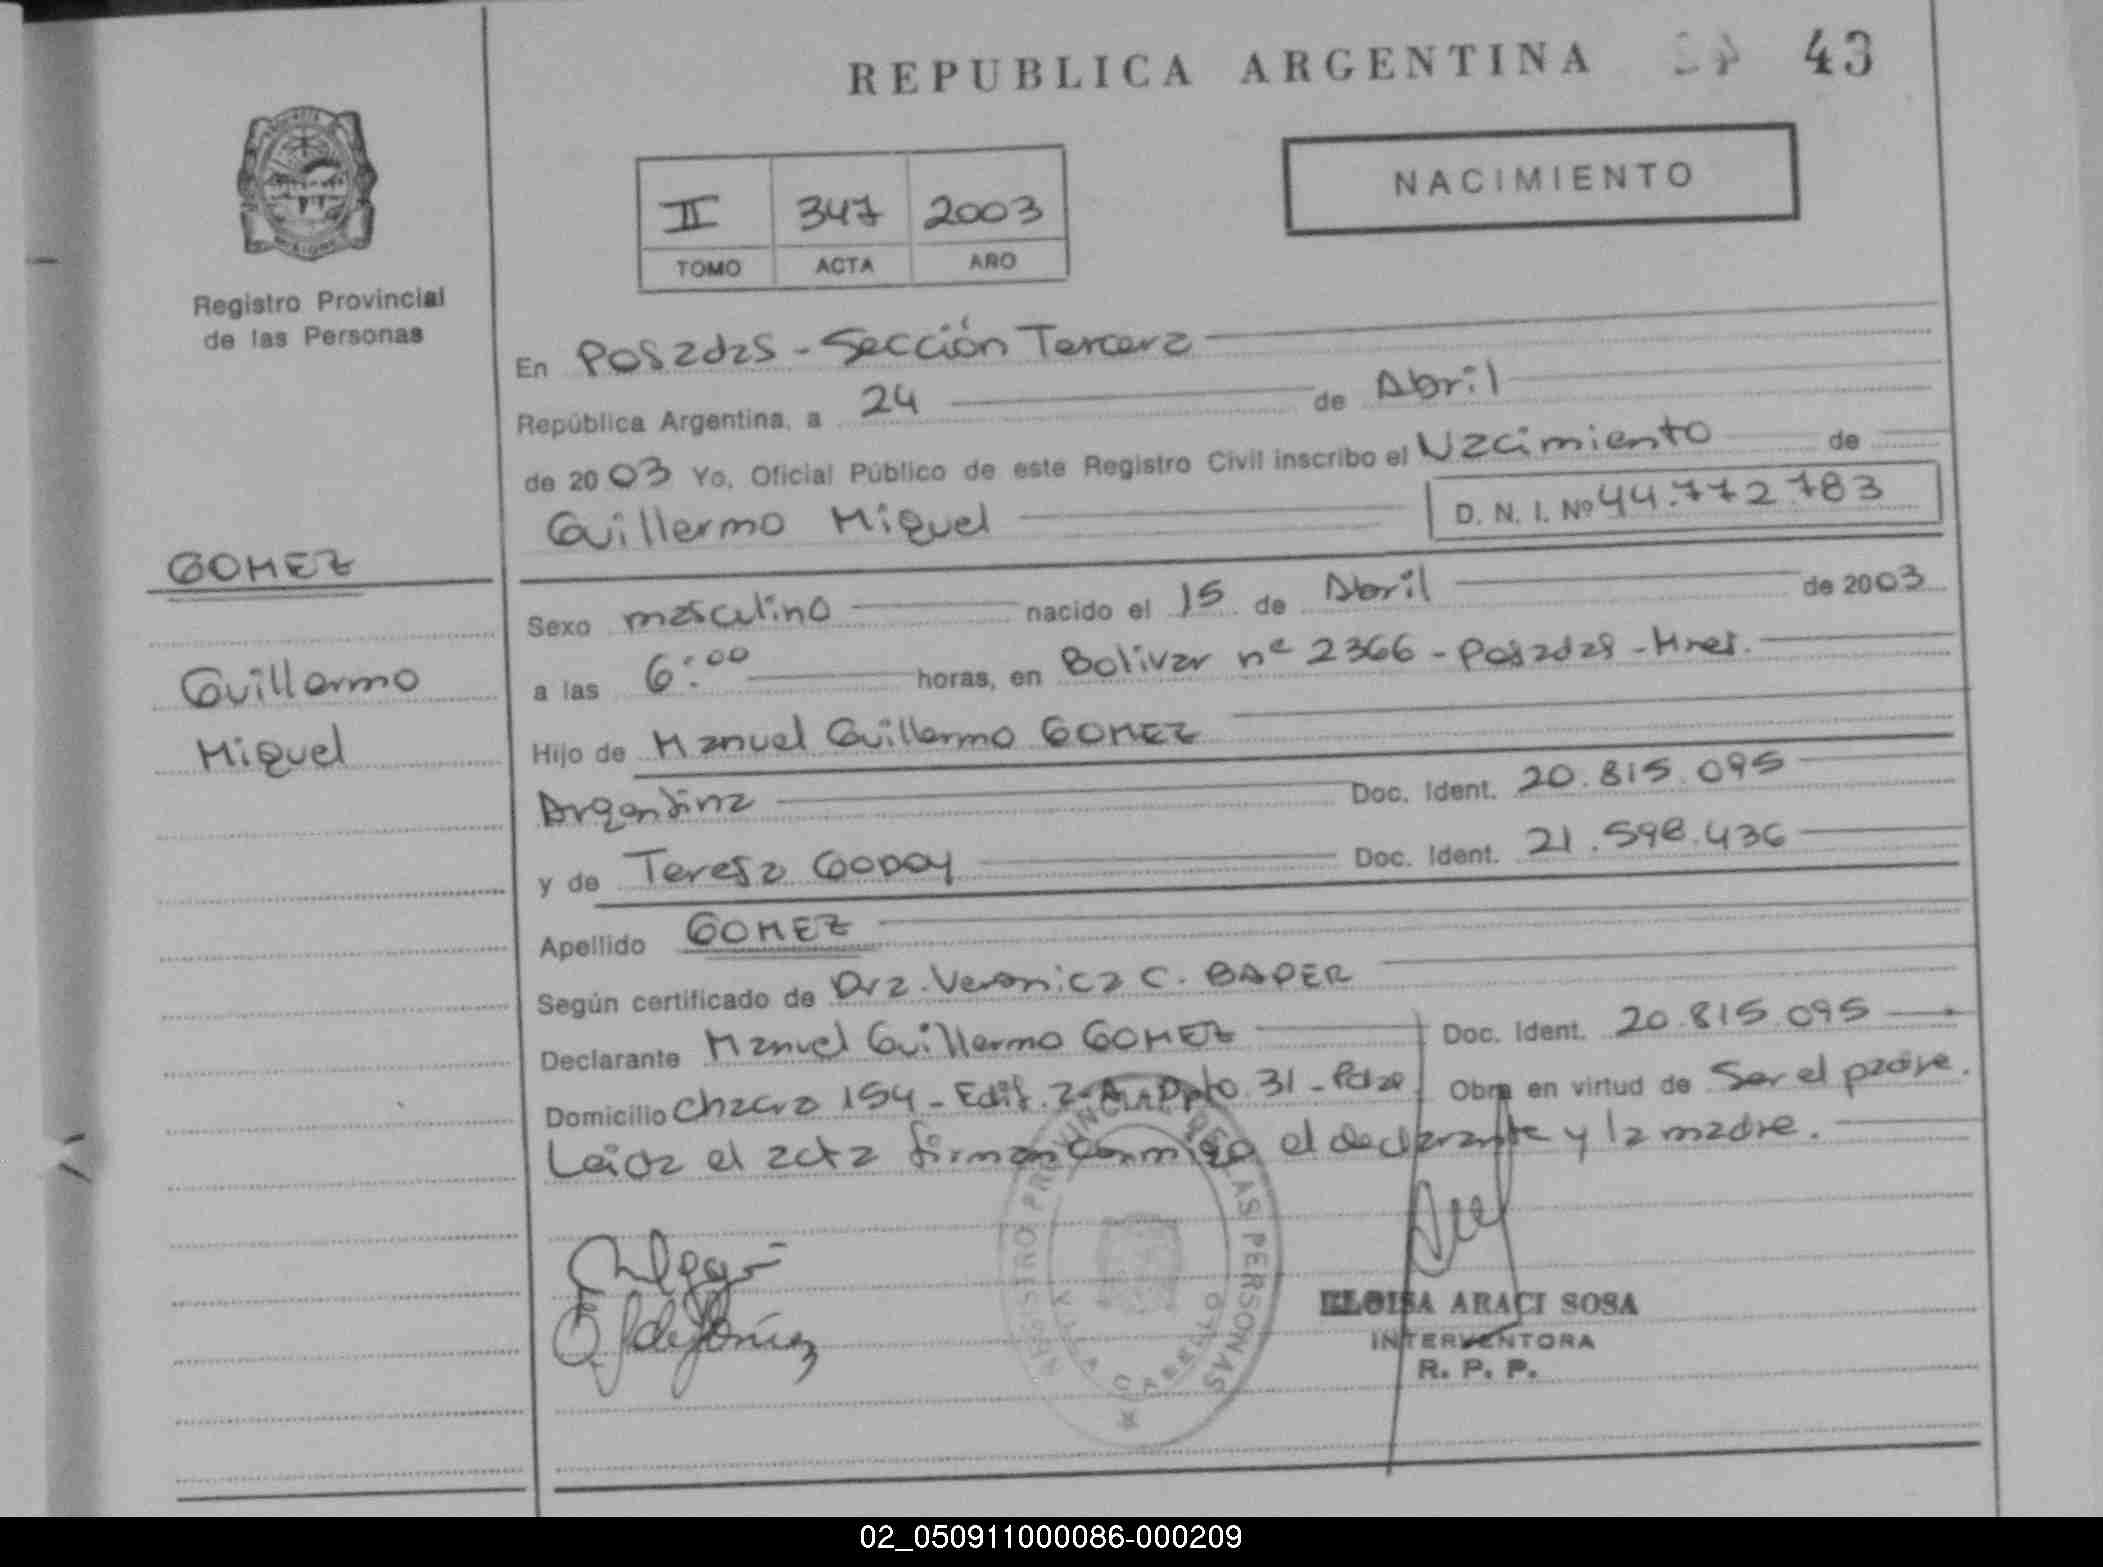 REPUBLICA ARGENTINA 43
NACIMIENTO
II 347 2003
TOMO ACTA AÑO
Registro Provincial
de las Personas
En Posadas - Sección Tercera
República Argentina, a 24 de Abril
de 2003 Yo, Oficial Público de este Registro Civil inscribo el Nacimiento de
Guillermo Miguel D. N. I. Nº 44.772.783
GOMEZ
Guillermo
Miguel
Sexo masculino nacido el 15 de Abril de 2003
a las 6:00 horas, en Bolivar nº 2366 - Posadas - Mnes.
Hijo de Manuel Guillermo GOMEZ
Argentina Doc. Ident. 20.815.095
y de Teresa GODOY Doc. Ident. 21.598.436
Apellido GOMEZ
Según certificado de Dra. Veronica C. BADER
Declarante Manuel Guillermo GOMEZ Doc. Ident. 20.815.095
Domicilio Chacra 154 - Edif. 2 Dpto. 31 - Pdas. Obra en virtud de Ser el padre.
Leida el acta firman conmigo el declarante y la madre.
REGISTRO PROVINCIAL DE LAS PERSONAS
VILLA CABELLO
ELOISA ARACI SOSA
INTERVENTORA
R. P. P.
02_050911000086-000209